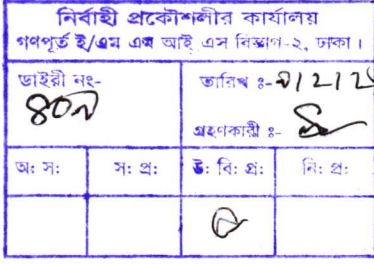 নির্বাহী প্রকৌশলীর কার্যালয়
গণপূর্ত ই/এম এন্ড আই এস বিভাগ-২, ঢাকা।
ডাইরী নং-
তারিখ ঃ-
গ্রহণকারী ঃ-
অ: স: স: প্র: উ: বি: প্র: নি: প্র: